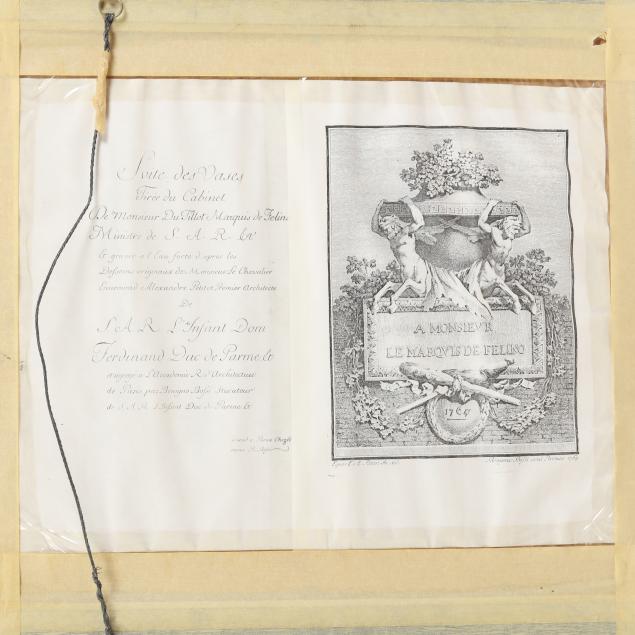 Suite des Vases
Tirée du Cabinet
De Monsieur Du Tillot Marquis de Felino
Ministre de S A R &c
& gravée à l'eau forte d'après les
Desseins originaux de Monsieur le Chevalier
Ennemond Alexandre Petitot Premier Architecte
De
S. A. R. L'Infant Dom
Ferdinand Duc de Parme &c
et aggregé à l'Academie R. d'Architecture
de Paris par Benigno Bossi Stucateur
de S. A. R. l'Infant Duc de Parme &c
A MONSIEVR
LE MARQVIS DE FELINO
1764